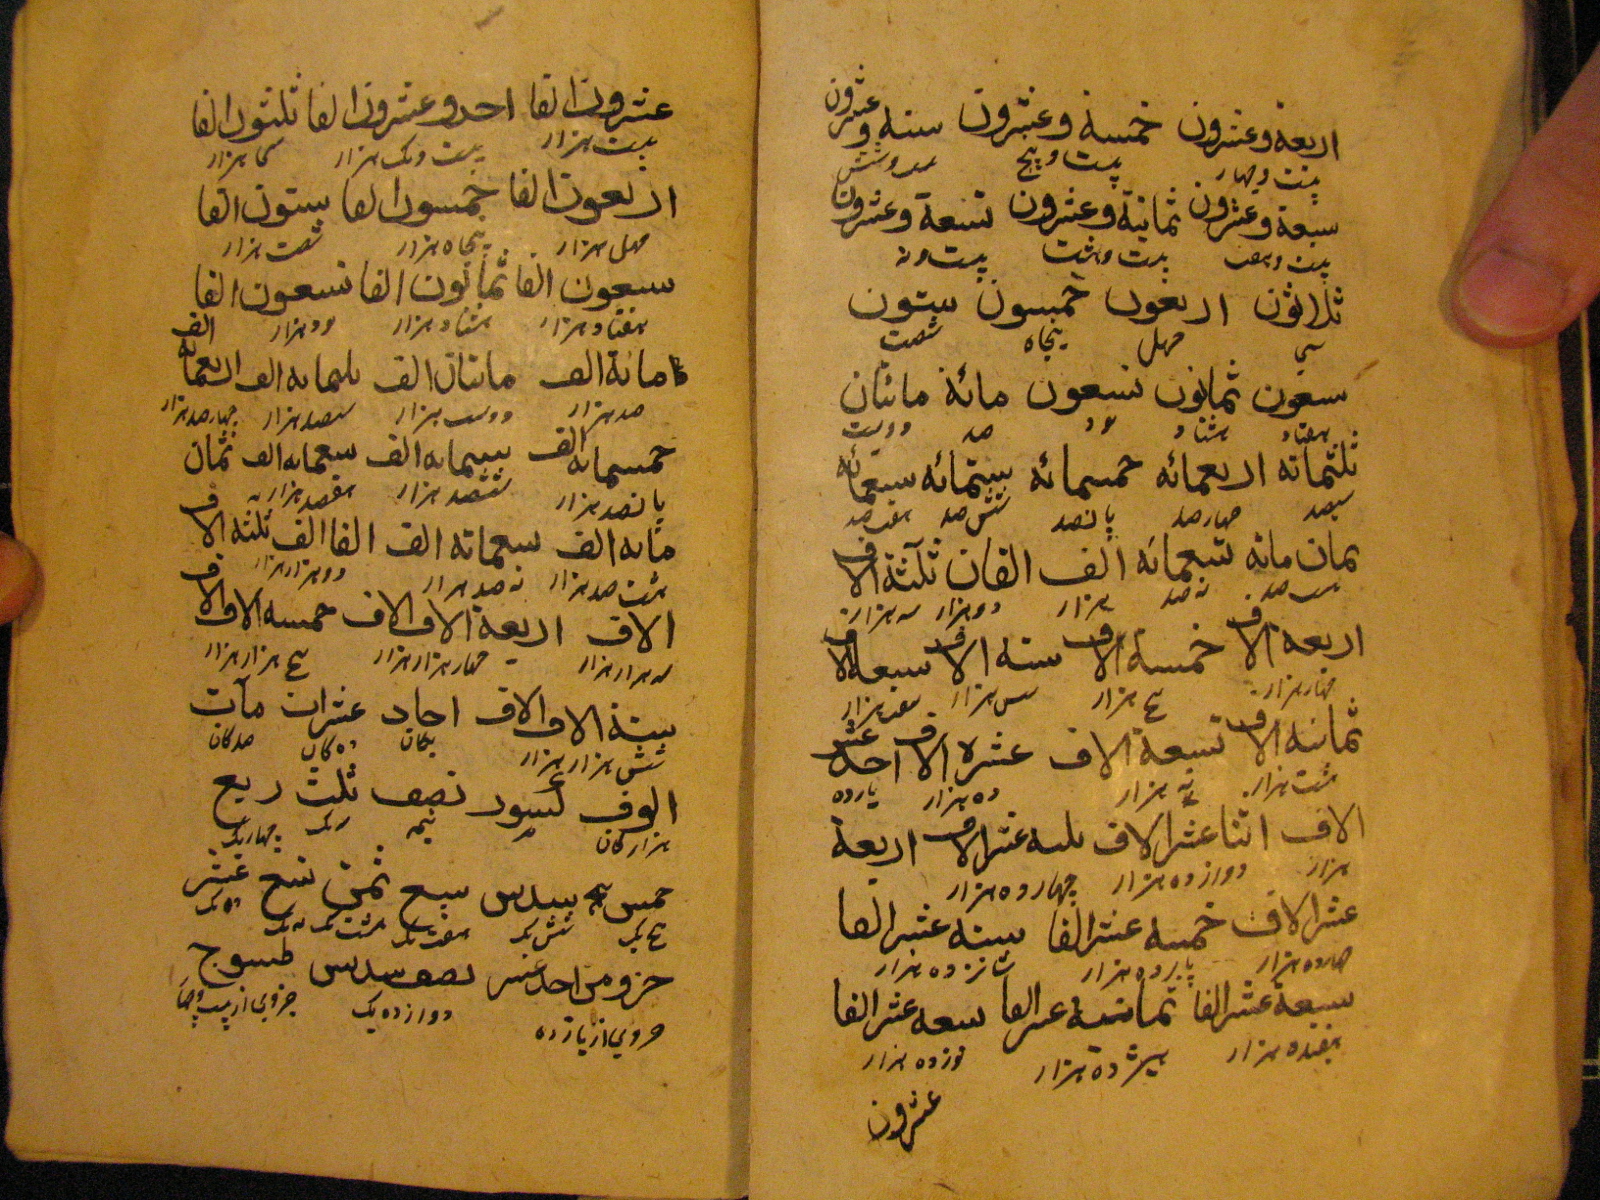 اربعة وعشرون خمسة وعشرون ستة وعشرون
بیست وچهار بیست و پنج بیست وشش
سبعة وعشرون ثمانية وعشرون تسعة وعشرون
بیست وهفت بیست وهشت بیست و نه
ثلاثون اربعون خمسون ستون
سی چهل پنجاه شصت
سبعون ثمانون تسعون مائة مائتان
هفتاد هشتاد نود صد دویست
ثلثمائه اربعمائه خمسمائه ستمائه سبعمائه
سیصد چهارصد پانصد شش صد هفت صد
ثمان مائه تسعمائه الف الفان ثلثة الاف
هشت صد نه صد هزار دوهزار سه هزار
اربعة الاف خمسة الاف ستة الاف سبعة الاف
چهارهزار پنج هزار شش هزار هفت هزار
ثمانية الاف تسعة الاف عشرة الاف احد عشر
هشت هزار نه هزار ده هزار یازده
الاف اثنا عشر الاف ثلثه عشر الاف اربعة
هزار دوازده هزار چهارده هزار
عشر الاف خمسه عشر الفا سته عشر الفا
چهارده هزار پانزده هزار شانزده هزار
سبعة عشر الفا ثمانيه عشر الفا تسعه عشر الفا
هفده هزار هیژده هزار نوزده هزار
عشرون
عشرون الفا احد وعشرون الفا ثلثون الفا
بیست هزار بیست ویک هزار سی هزار
اربعون الفا خمسون الفا ستون الفا
چهل هزار پنجاه هزار شصت هزار
سبعون الفا ثمانون الفا تسعون الفا
هفتاد هزار هشتاد هزار نود هزار
مائة الف مائتان الف ثلثمائه الف اربعمائه الف
صد هزار دویست هزار سیصد هزار چهار صد هزار
خمسمائه الف ستمائه الف سبعمائه الف ثمان
پانصد هزار ششصد هزار هفصد هزار
مائه الف تسعمائه الف الفا الف ثلثه الاف
هشت صد هزار نه صد هزار دو هزار هزار
الاف اربعة الاف الاف خمسه الاف الاف
سه هزار هزار چهار هزار هزار پنج هزار هزار
ستة الاف الاف احاد عشرات مآت
شش هزار هزار یکان ده کان صد کان
الوف كسور نصف ثلث ربع
هزار کان نیمه سه یک چهاریک
خمس سدس سبع ثمن تسع عشر
پنج یک شش یک هفت یک هشت یک نه یک ده یک
جزو من احد عشر نصف سدس طسوج
جزوی از یازده دوازده یک جزوی از بیست وچهار